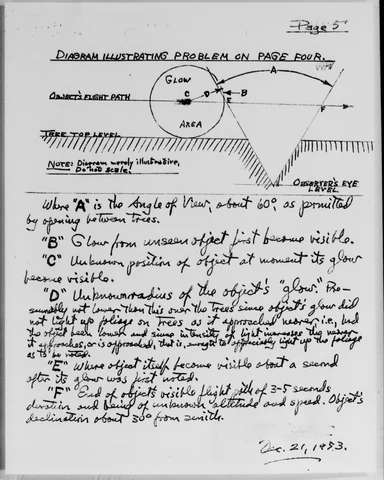 Page 5
DIAGRAM ILLUSTRATING PROBLEM ON PAGE FOUR.
A
GLOW
OBJECT'S FLIGHT PATH
C D B
E F
AREA
TREE TOP LEVEL
NOTE: Diagram merely illustrative,
Do not scale.
OBSERVER'S EYE
LEVEL
Where "A" is the Angle of View, about 60°, as permitted
by opening between trees.
"B" Glow from unseen object first became visible.
"C" Unknown position of object at moment its glow
became visible.
"D" Unknown radius of the object's "glow." Pre-
sumably not lower than this over the trees since object's glow did
not light up foliage on trees as it approached nearer, i.e., had
the object been lower and since intensity of light increases the nearer
it approaches, or is approached, that is, enough to appreciably light up the foliage
as to be noted.
"E" Where object itself became visible about a second
after its glow was first noted.
"F" End of objects visible flight path of 3-5 seconds
duration and being of unknown altitude and speed. Object's
declination about 30° from zenith.
Dec. 21, 1953.